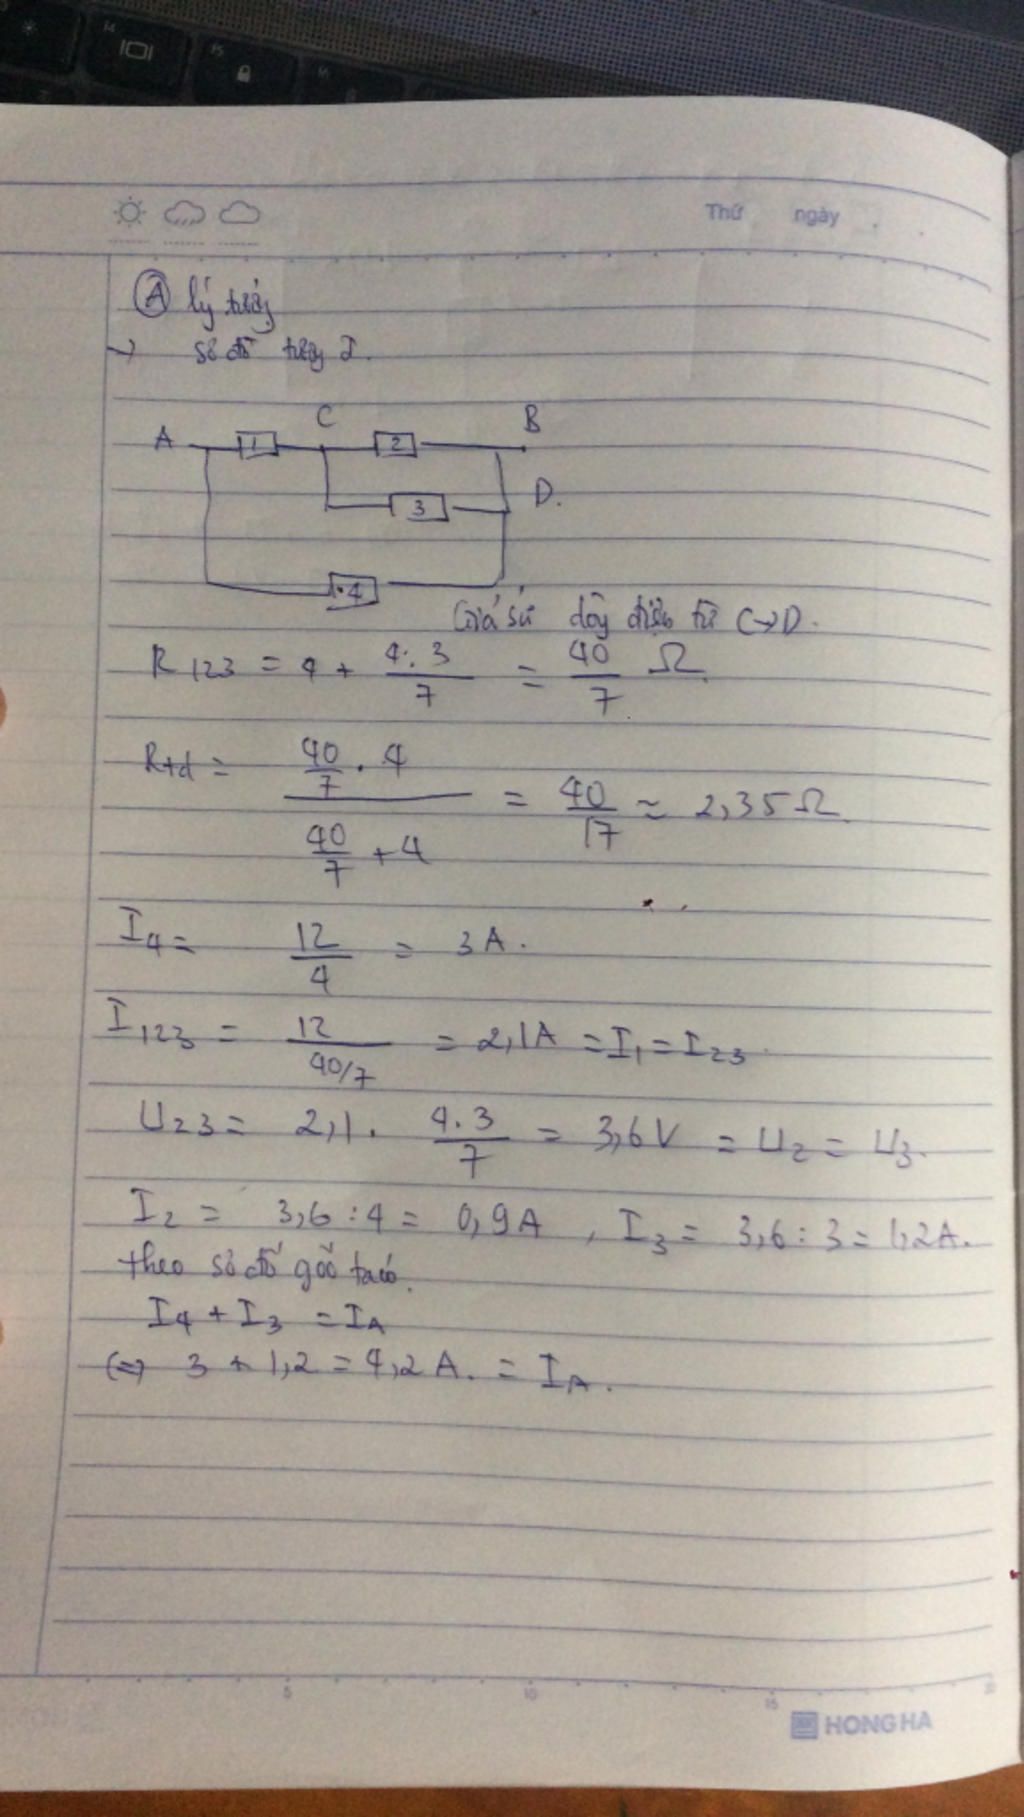 Thứ ngày
Ⓐ lý tưởng
→ sơ đồ tương đ.
C B
A 1 2
3 D.
4
Giả sử dây điện từ C→D.
R₁₂₃ = 4 + \frac{4.3}{7} = \frac{40}{7} Ω
Rtđ = \frac{\frac{40}{7} . 4}{\frac{40}{7} + 4} = \frac{40}{17} ≈ 2,35Ω
I₄ = \frac{12}{4} = 3A.
I₁₂₃ = \frac{12}{40/7} = 2,1A = I₁ = I₂₃
U₂₃ = 2,1 . \frac{4.3}{7} = 3,6V = U₂ = U₃.
I₂ = 3,6 : 4 = 0,9A , I₃ = 3,6 : 3 = 1,2A.
theo sơ đồ gốc ta có.
I₄ + I₃ = I_A
(=) 3 + 1,2 = 4,2A. = I_A.
5 10 15 20
HONG HA